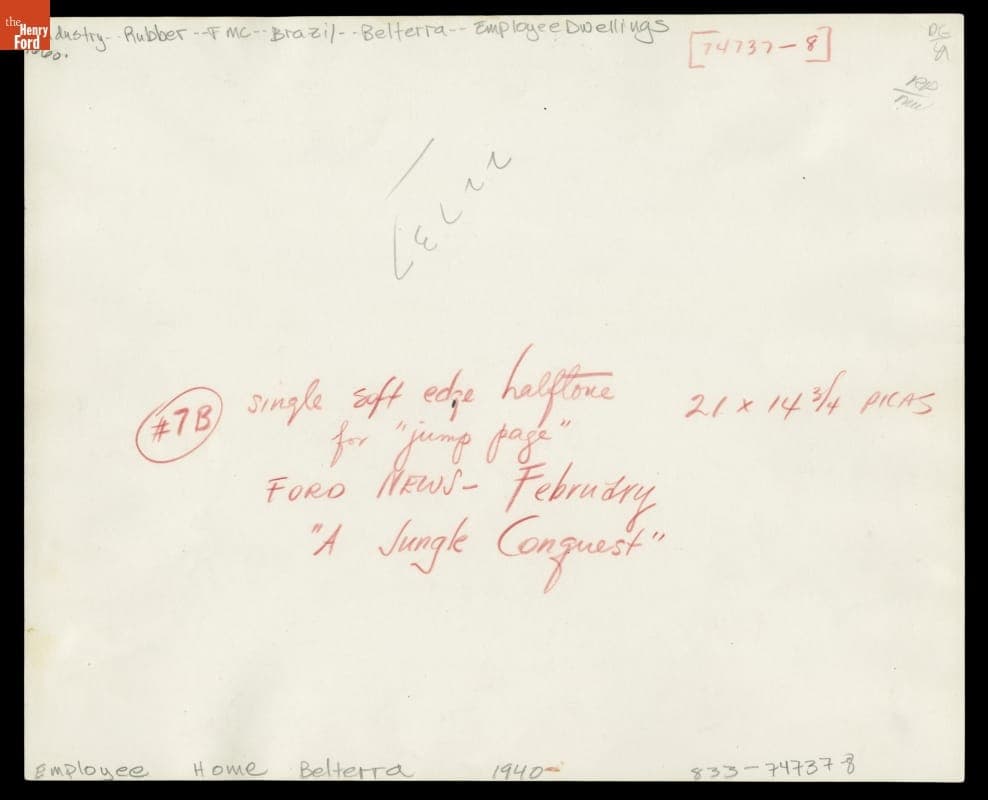 the Henry Ford
dustry-- Rubber -- FMC -- Brazil -- Belterra -- Employee Dwellings
[74737-8]
#7B
single soft edge halftone
21 x 14 3/4 PICAS
for "jump page"
FORD NEWS - February
"A Jungle Conquest"
Employee Home Belterra 1940- 833-74737-8